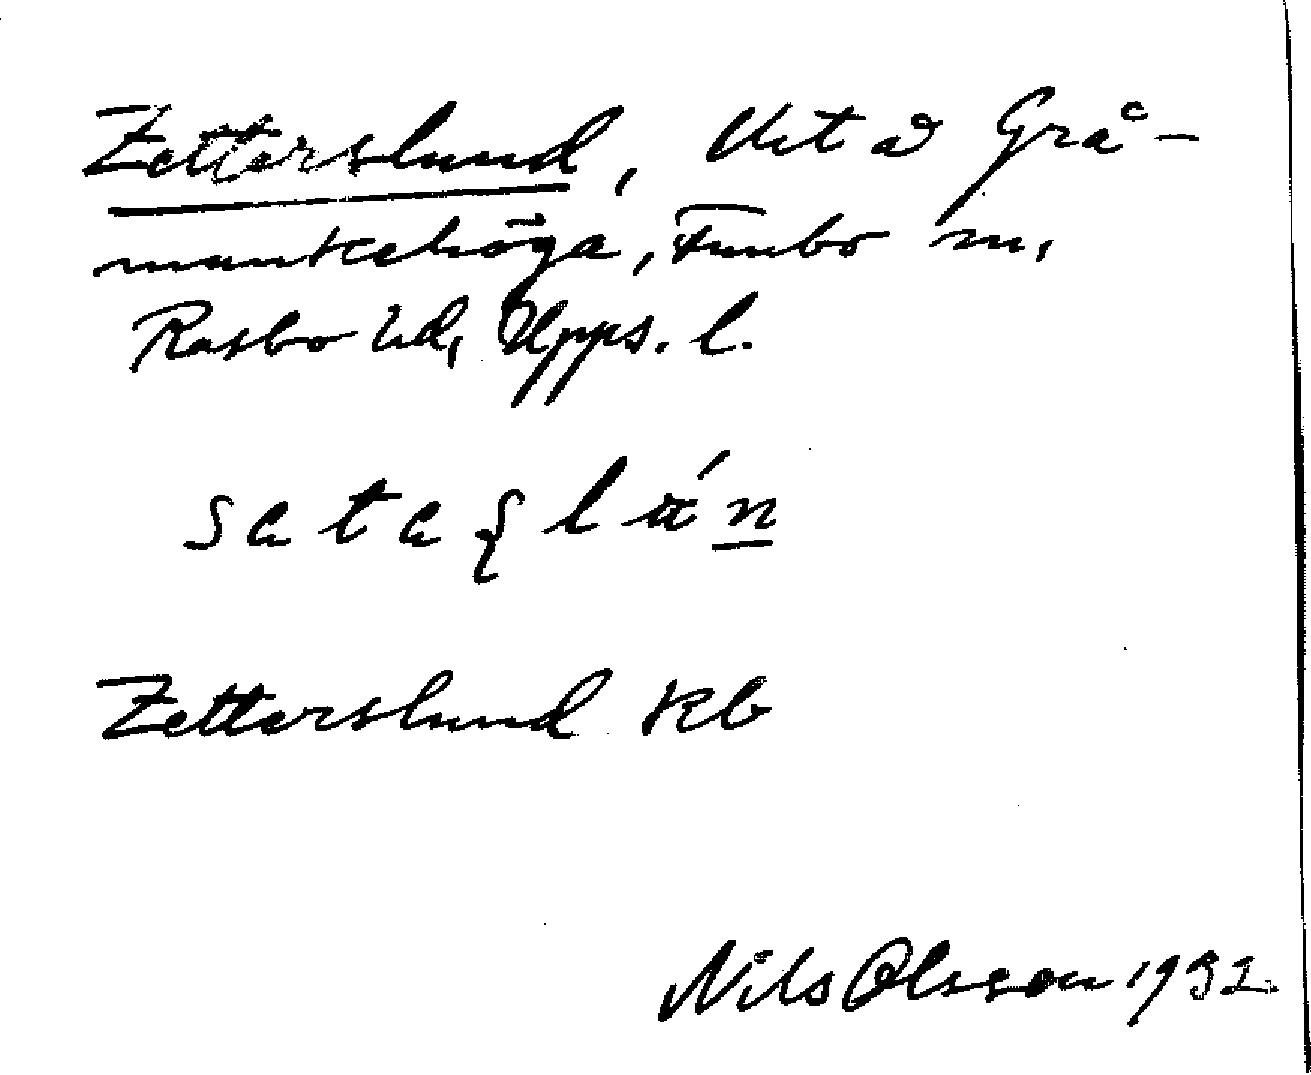 Zetterslund, Utt å Grå-
munkehöga, Funbo sn,
Rasbo hd, Upps. l.
Zetterslund Kb
Nils Olsson 1932